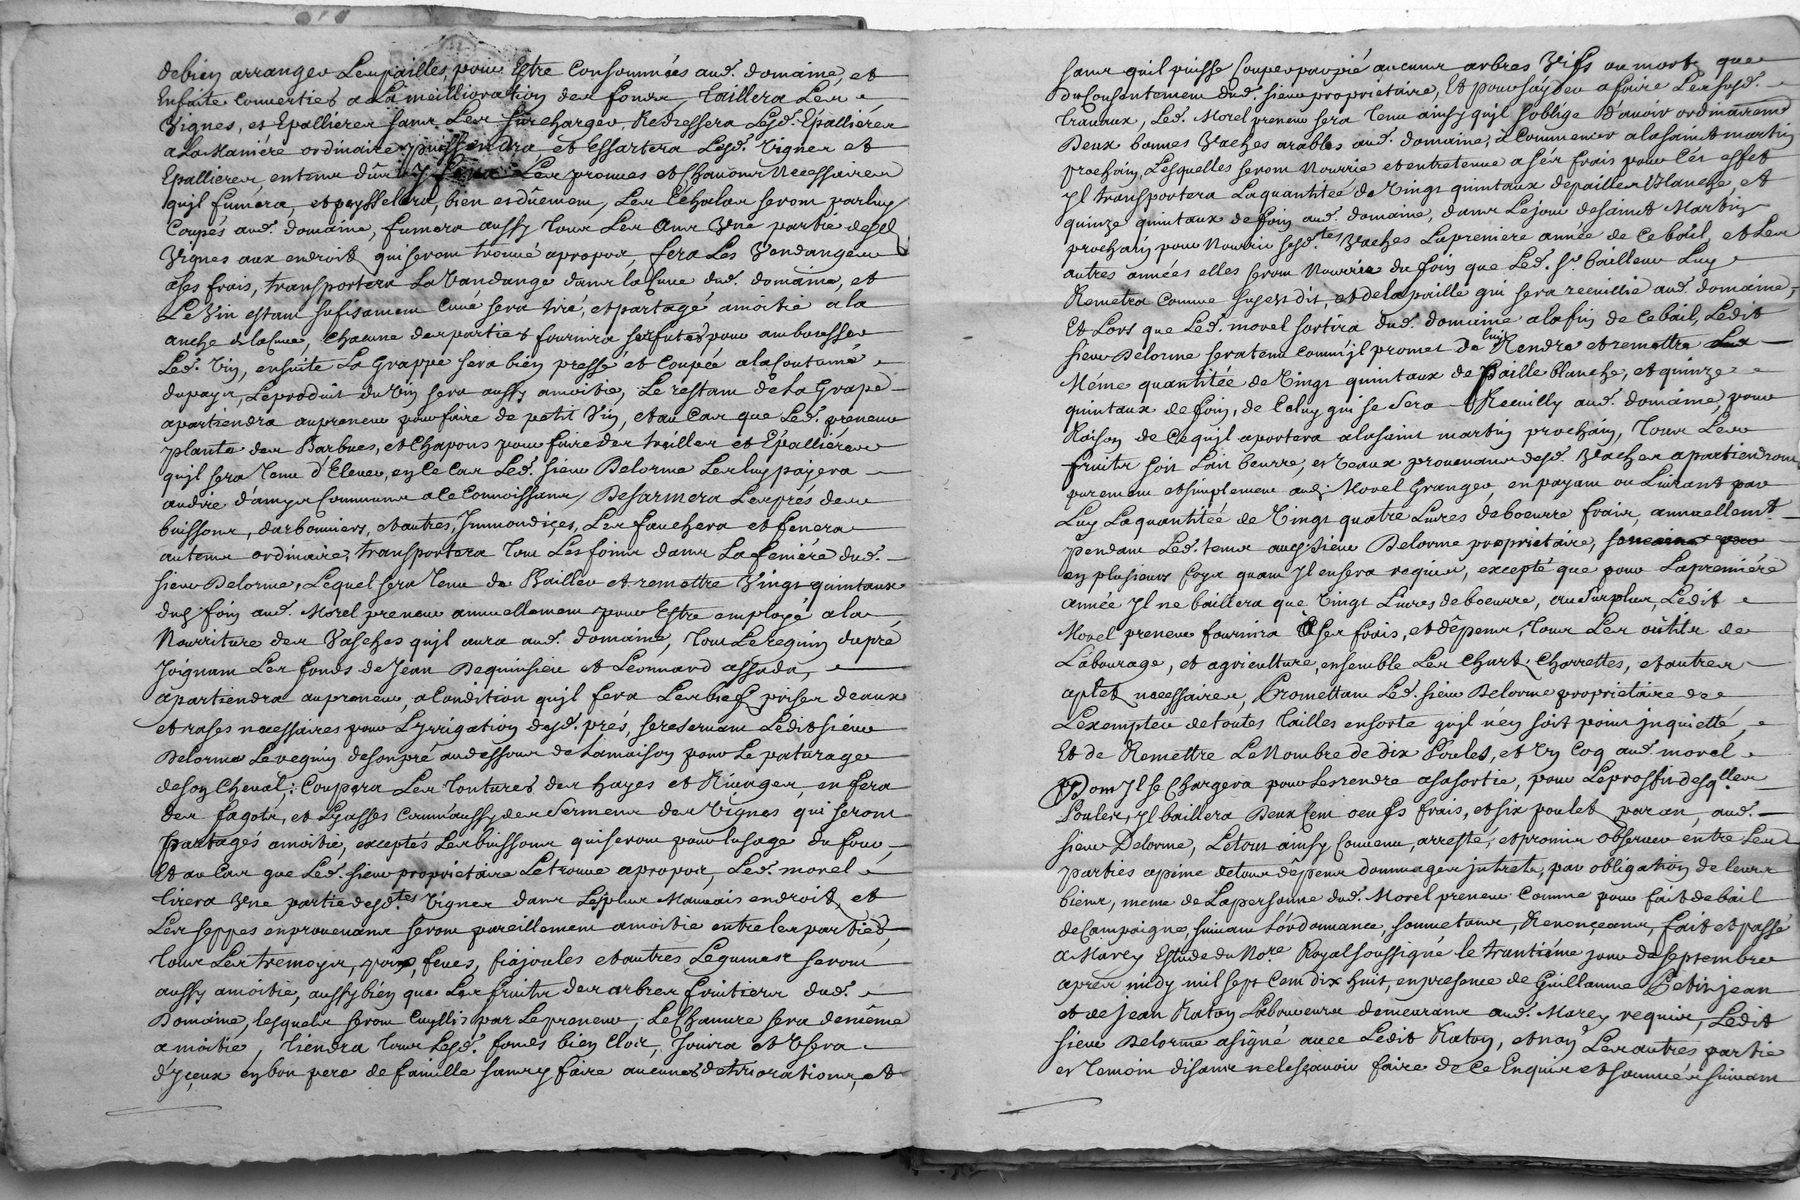 de bien arranger Les pailles, pour Estre Consommées aud. domaine, et
Ensuite Converties a La meillioration des fonds, Taillera Les
Vignes, et Epallieres sans Les surcharger, Redressera Lesd. Epallieres
a La Maniere ordinaire, et Essartera Lesd. Vignes et
Epallieres, en tems dû, fera Les provues et Chavons Necessaires
quil fumera, et peyssellera, bien et dûement, Les Echalas seront par luy
Coupés aud. domaine, fumera aussy tous Les Ans Vne partie desd.
Vignes aux endroit qui seront trouvé apropos, fera Les Vendanges
a Ses frais, transportera La Vandange dans la Cuve dud. domaine, et
Le Vin estant sufisament Cuvé sera tiré, et partagé amoitié a la
anche de la Cuve, Chacune des parties fournira ses futes pour embousser
Led. Vin, ensuite La Grappe sera bien pressé et Coupée a la Coutume
du pays, Le produit du Vin sera aussy amoitié, Le restant de La Grape
apartiendra au preneur pour faire de petit Vin, et au Cas que Led. preneur
plante des Barbues, et Chapons pour faire des treilles et Epallieres
quil sera Tenu d'Elever, en Ce Cas Led. Sieur Delorme Les luy payera
au dire d'amys Communs a Ce Connoissans, Desarmera Les prés des
buissons, darbonniers, et autres Jmmondiçes, Les fauchera et fenera
au tems ordinaire, transportera Tous Les foins dans La feniere dud.
Sieur Delorme, Lequel sera Tenu de Bailler et remettre Vingt quintaux
dud. foin aud. Morel preneur annuellement pour Estre employé a la
Nourriture des Vasches quil aura aud. domaine, Tout Le reguin du pré
Joignant Les fonds de Jean Dequinsieu et Leonnard assada,
apartiendra au preneur, a Condition quil fera Les biefs prises deaux
et rases necessaires pour Lyrrigation desd. prés, se reservant Ledit Sieur
Delorme Le reguin de son pré au dessous de La maison pour Le paturage
de son Cheval; Coupera Les Tontures des hayes et Rivages, en fera
des fagots, et Lyasses Comm'aussy des Serments des Vignes qui seront
partagés amoitié, exceptés Les buissons qui seront pour lusage du four,
Et au Cas que Led. Sieur proprietaire Le trouve apropos, Led. morel
tirera Vne partie desdtes Vignes dans Les plus Mauvais endroit, et
Les seppes en provenans seront pareillement amoitié entre les parties,
Tous Les tremoys, pois, feves, fiajoules et autres Legumes seront
aussy amoitié, aussy bien que Les fruits des arbres fruitiers dud.
Domaine, lesquels seront Cuyllis par Le preneur, Le Chanvre sera de même
amoitié, Tiendra Tous Lesd. fonds bien Clos, Jouira et Vsera
dyçeux en bon pere de famille sans y faire aucunes detriorations, et
sans quil puisse Couper par pié aucuns arbres Vifs ou morts que
du Consentement dud. Sieur proprietaire, Et pour sayder a faire Les susd.
Travaux, Led. Morel preneur sera Tenu ainsy quil soblige D'avoir ordinairement
Deux bonnes Vaches arables aud. domaine, a Commencer a la saint martin
prochain, Lesquelles seront Nourrie et entretenue a ses frais pour Cés effet
Jl transportera La quantitée de Vingt quintaux de paille blanche, et
quinze quintaux de foin aud. domaine, dans Le jour de saint Martin
prochain pour Nourrir sesdtes Vaches La premiere année de Ce bail, et Les
autres années elles seront Nourrie du foin que Led. Sr. bailleur Luy
Remetra Comme susest dit, et de la paille qui sera recuillie aud. domaine,
Et Lors que Led. morel sortira dud. domaine a la fin de Ce bail, Ledit
Sieur Delorme sera tenu Comm'jl promet De luy Rendre et remettre La
Même quantitée de Vingt quintaux de paille blanche, et quinze
quintaux de foin, de Celuy qui se Sera Recuilly aud. domaine, pour
Raison de Ce quil aportera a la saint martin prochain, Tous Les
fruits soit Lait beurre, et Veaux provenans desd. Vaches apartiendront
purement et simplement aud. Morel Granger en payant ou Livrant par
Luy La quantitée de Vingt quatre Livres de boeurre frais, annuellemt.
pendant Led. tems aud. Sieur Delorme proprietaire,
en plusieurs foys quant Jl en sera requis, excepté que pour La premiére
année Jl ne baillera que Vingt Livres de boeurre, au Surplus, Ledit
Morel preneur fournira a Ses frais, et dêpens, Tous Les oûtils de
Labourage, et agriculture, ensemble Les Chart, Charrettes, et autres
aplets necessaires, Promettant Led. Sieur Delorme proprietaire de
Lexempter de toutes Tailles en sorte quil n'en soit point jnquietté,
Et de Remettre Le Nombre de Dix Poules, et Vn Coq aud. morel
Dont Jl se Chargera pour Les rendre a sa sortie, pour Le proffit desqlles
Poules, Jl baillera Deux Cent oeufs frais, et six poulet par an, aud.
Sieur Delorme, Le tout ainsy Convenu, arresté, et promis observer entre Les
parties a peine de tous dêpens dommages jntrets, par obligation de leurs
biens, meme de La personne dud. Morel preneur Comme pour fait de bail
de Campaigne, suivant Lordonnance, soumetans, Renonçeans, fait et passé
a Marey Estude du Nore. Royal soussigné le trantiéme jour de septembre
apres midy mil sept Cent dix huit, en presence de Guillaume Petitjean
et de Jean Raton Laboureurs demeurans aud. Marey requis, Ledit
Sieur Delorme a signé avec Ledit Raton, et non Les autres partie
et Temoin disans ne le sçavoir faire de Ce Enquis et sommés suivant